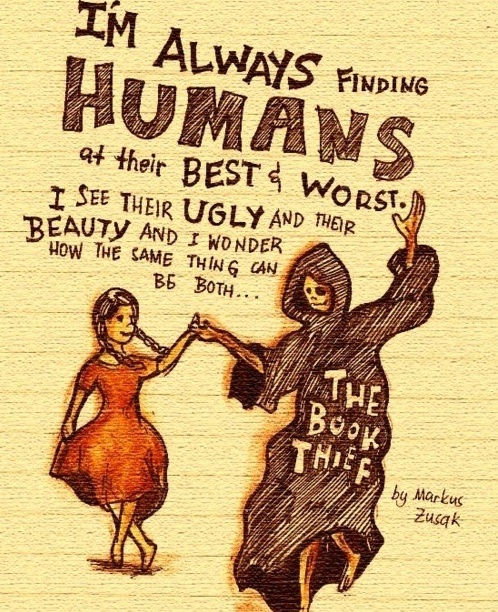 I'M ALWAYS FINDING
HUMANS
at their BEST & WORST.
I SEE THEIR UGLY AND THEIR
BEAUTY AND I WONDER
HOW THE SAME THING CAN
BE BOTH...
THE
BOOK
THIEF
by Markus
Zusak